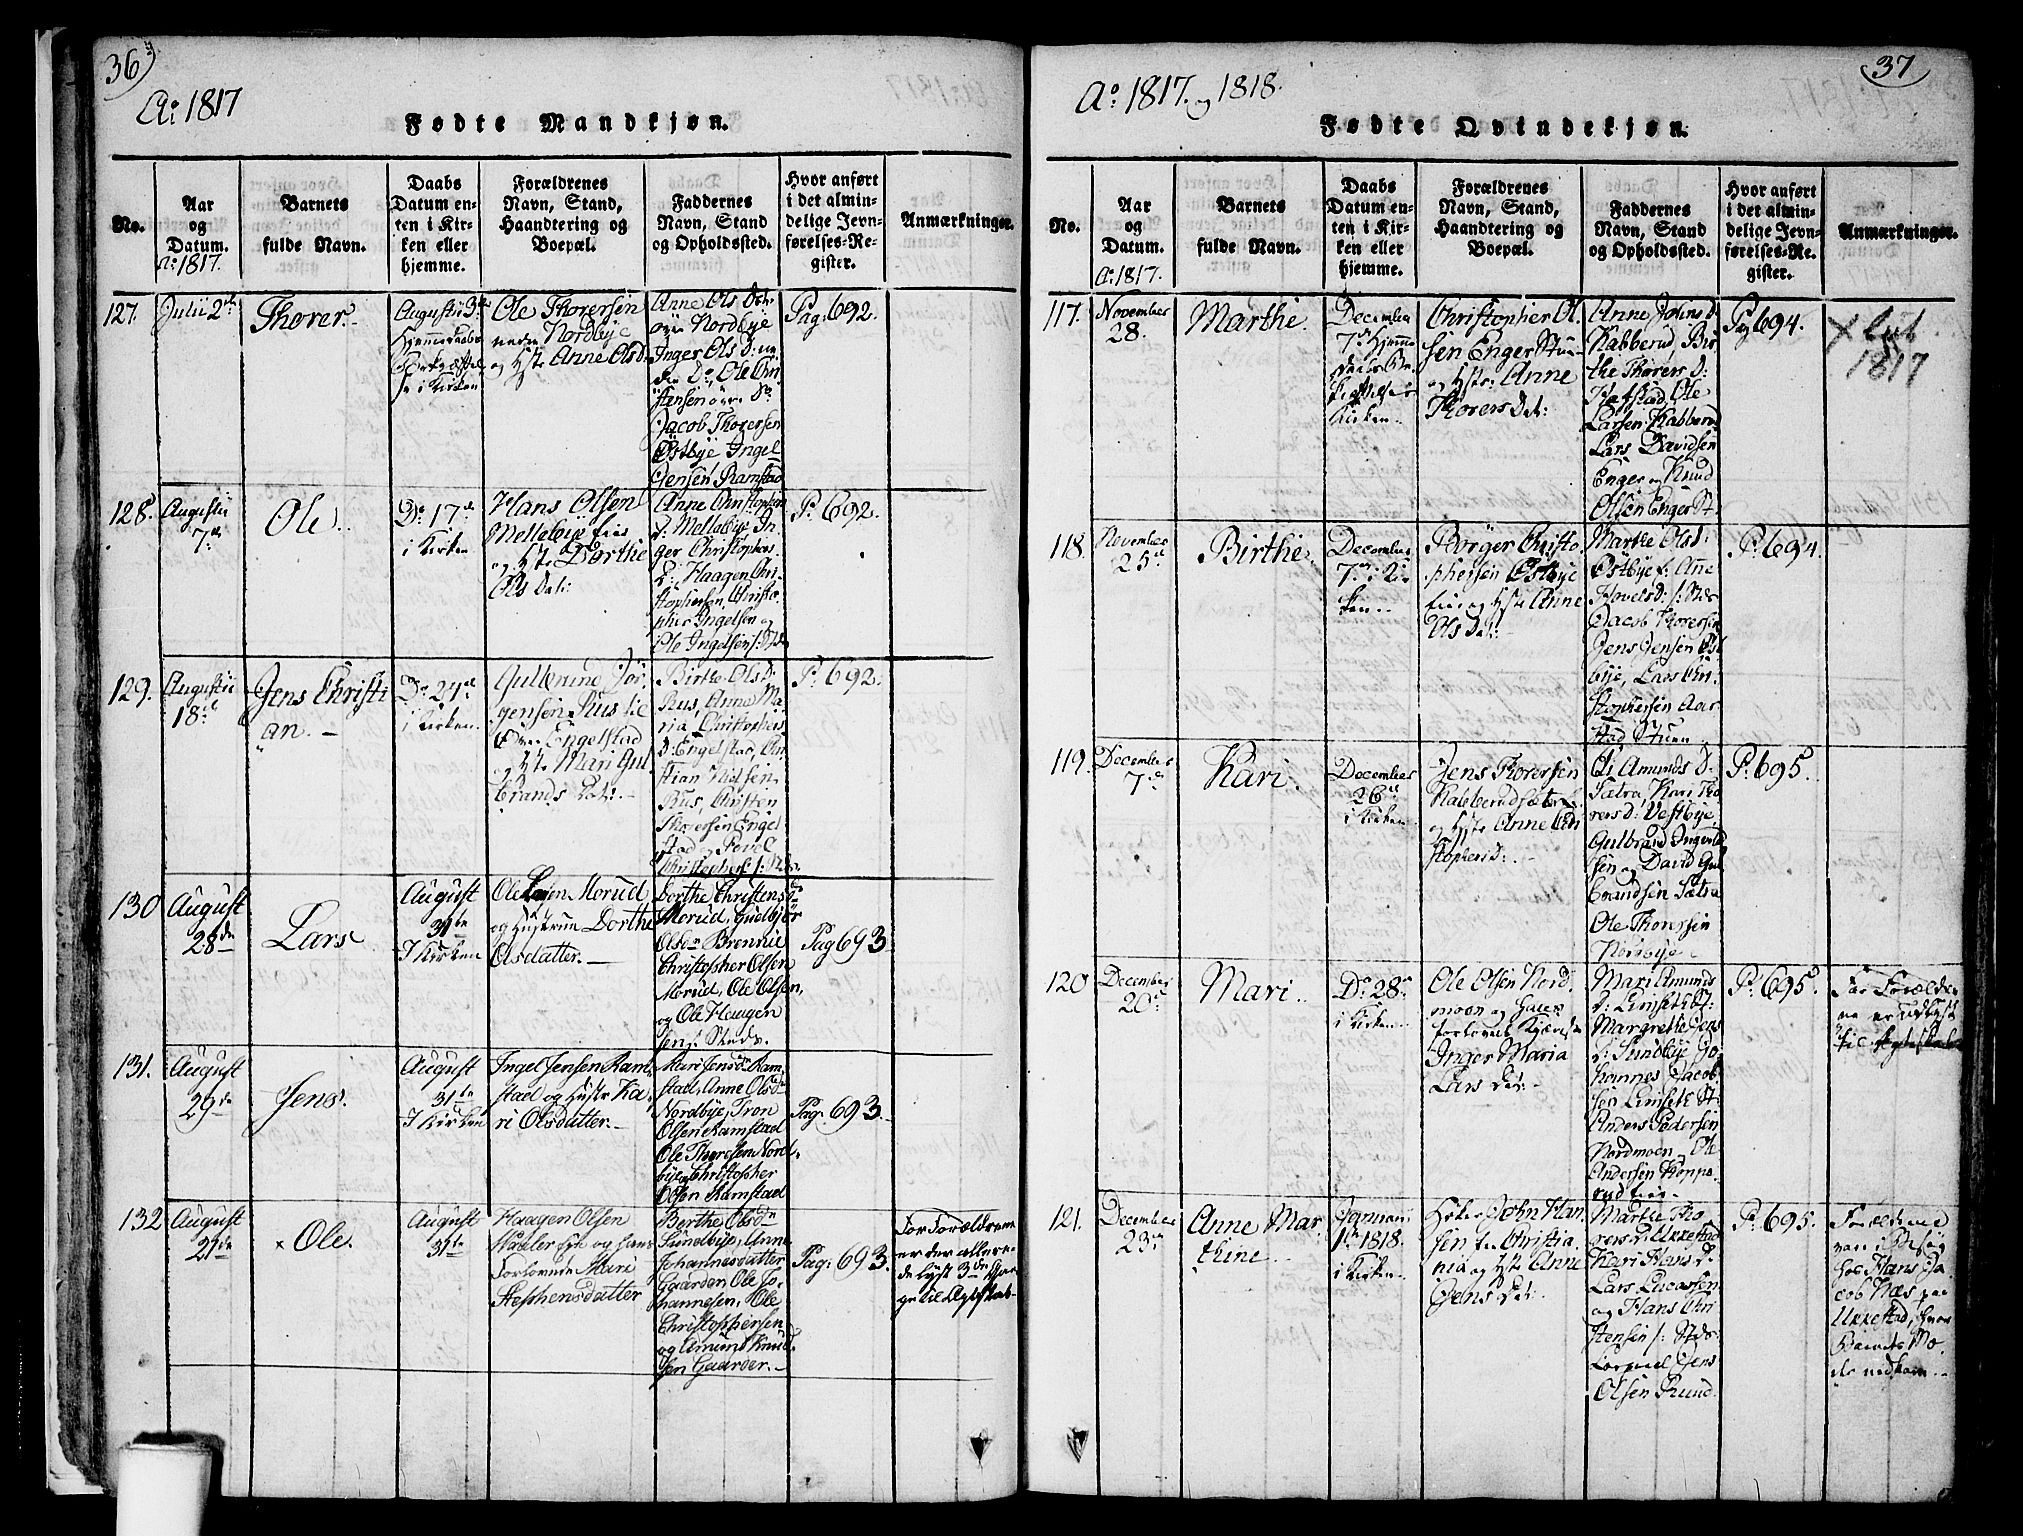 36
Ao: 1817
Fødte Mandkjøn.
No.
Aar
og
Datum.
Ao: 1817.
Barnets
fulde Navn.
Daabs
Datum en-
ten i Kir-
ken eller
hjemme.
Forældrenes
Navn, Stand,
Haandtering og
Boepæl.
Faddernes
Navn, Stand
og Opholdssted.
Hvor anført
i det almin-
delige Jevn-
førelses-Re-
gister.
Anmærkninger.
127.
Julii 2de
Thorer.
Augustii 3de
i Kirken
Ole Thorersen
nedre Nordbye
og Hstr Anne Olsd:
Anne Ols Dat:
øvre Nordbye
Inger Ols D: ne
dre Do, Ole Chri
stensen øvre Do
Jacob Thorersen
Østbye Ingel
Jensen Ramstad
Pag: 692.
128.
Augustii
7de
Ole.
Do 17de
i Kirken
Hans Olsen
Mellebye Eier
og Hstr Dorthe
Ols Dat:
Anne Christophers
D: Mellebye In
ger Christophers
D: Haagen Chri
stophersen, Christo
pher Ingelsen og
Ole Ingelsen
P: 692.
129.
Augustii
18de
Jens Christi
an.
Do 24de
i Kirken.
Gulbrand Jør
gensen Huus
Engelstad
og Hstr Mari Gul
brands Dat:
Birthe Ols D:
Rus, Anne Ma
ria Christophers
D: Engelstad, Chri
stian Nielsen
Rus, Christen
Thorersen Engel
stad og Povel
P: 692.
130
August
28de
Lars
August
31te
I Kirken
Ole Morud
og Hustrue Dorthe
Olsdatter.
Dorthe Christensd
Morud, Gudbjør
Olsdn Brennie
Christopher Olsen
Morud, Ole Olsen,
og Ole Haagen
sen
Pag 693
131.
August
29de
Jens.
August
31te
I Kirken
Ingel Jensen Ram
stad og Hustr Ka
ri Olsdatter.
Mari Jensdn Ram
stad, Anne Olsdn
Nordbye, Tron
Olsen Ramstad
Ole Thoresen Nord
bye Christopher
Olsen Ramstad
Pag: 693.
132
August
21de
Ole.
August
31te
Haagen Olsen
og hans
Forlovede Mari
Stephensdatter
Berthe Olsdn
Sundbye, Anne
Johannesdatter
Gaarder, Ole Jo
hannesen, Ole
Christophersen
og Amund Knud
sen Gaarder.
Pag: 693.
For Forældrene
er der allere-
de lyst 3de Gan
ge til Ægteskab.
37
Ao: 1817. og 1818.
Fødte Qvindekjøn.
No.
Aar
og
Datum.
Ao: 1817.
Barnets
fulde Navn.
Daabs
Datum en-
ten i Kir-
ken eller
hjemme.
Forældrenes
Navn, Stand,
Haandtering og
Boepæl.
Faddernes
Navn, Stand
og Opholdssted.
Hvor anført
i det almin-
delige Jevn-
førelses-Re-
gister.
Anmærkninger.
117.
November
28.
Marthe.
December
7de Hjemme
Kirken.
Christopher Ol
sen Enger Stue
og Hstr: Anne
Thorers Dat:
Anne Johns D:
Kabberud Bir
the Thorers D:
Ole
Larsen Kabberud
Lars Davidsen
Enger og Knud
Olsen Enger St.
Pag 694.
1817
118.
November
25de
Birthe.
December
7de i Kir
ken.
Børger Christo
phersen Østbye
Eier og Hstr Anne
Ols Dat:
Marthe Ols D:
Østbye E: Anne
Povels D:
Jacob Thorersen
Jens Jensen Øst
bye, Lars Chri
stophersen Aar
stad Stuen
P: 694.
119.
December
7de
Kari.
December
26de
i Kirken
Jens Thorersen
Kabberudsæter
og Hstr Anne Chri
stophersd:
Amunds D:
Sætra, Kari Tho
rers D: Vestbye,
Gulbrand Ingeld
sen og David Gul
brandsen Sætra
Ole Thorersen
Nordbye
P: 695.
120
December
20de
Mari.
Do 28de
i Kirken.
Ole Olsen Nord
moen og Hans
forlovede Kjæreste
Inger Maria
Lars Dat:
Mari Amunds
D: Linset
Margrethe Jens
D: Sundbye Jo
hannes Jacob
sen Linset
Anders Pedersen
Nordmoen, Ole
Andersen Koppe
rud
P: 695.
For Forældre
ne er udlyst
til Ægteskab
121.
December
23de
Anne Mar
thine.
Januari
1te 1818.
i Kirken.
John Han
sen fra Christia
nia og Hstr Anne
Jens Dat:
Marthe Tho
rers D: Ukkestad
Kari Hans D.
Lars Lucassen
og Hans Chri
stensen
Jens
Olsen Rund.
P: 695.
Forældrene
var i Besøg
hos Hans Ja
cob Næs paa
Ukkestad, hvor
Barnets Mo
der nedkom.